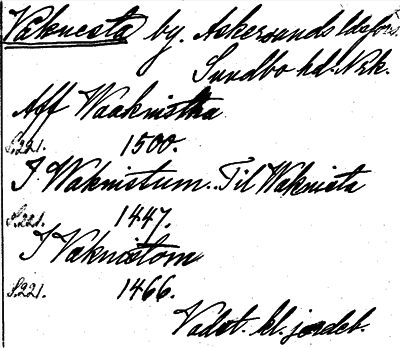 Vaknesta by. Askersunds ldsförs.
Sundbo hd. Nrk.
Aff Waaknistha
S.221. 1500.
I Waknistum. Til Waknista
S.221. 1447.
I Vaknistom
S.221. 1466.
Vadst. kl. jordeb.